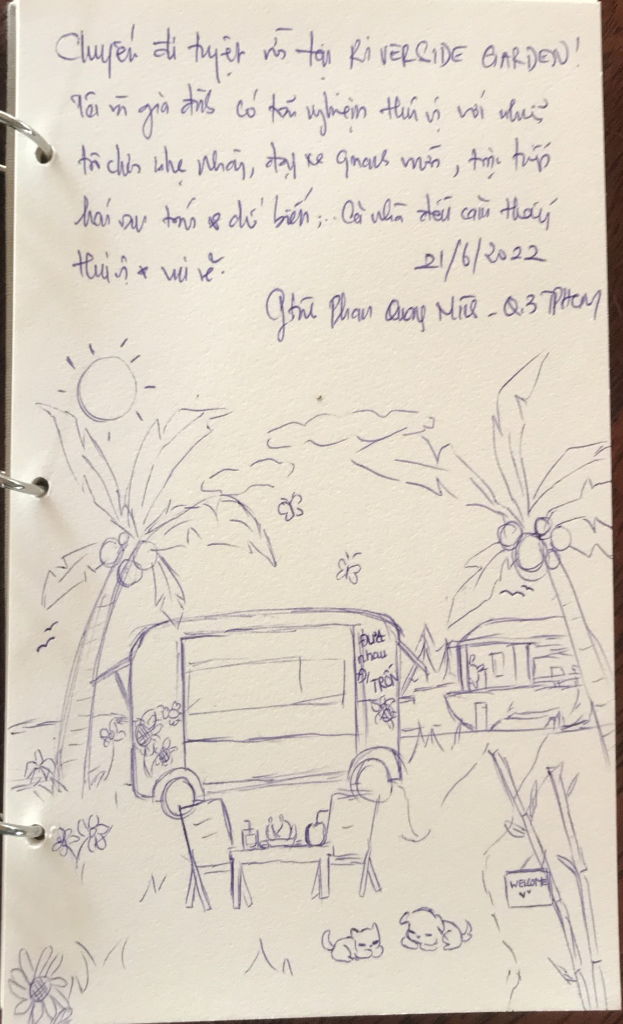 Chuyến đi tuyệt vời tại RIVERSIDE GARDEN!
Tôi và gia đình có trải nghiệm thú vị với những
trò chơi nhẹ nhàng, đạp xe quanh vườn,
biển;... Cả nhà đều cảm thấy
thú vị & vui vẻ.
21/6/2022
Gđình Phan Quang Minh - Q.3 TPHCM
Đưa
nhau
đi
TRỐN
WELCOME